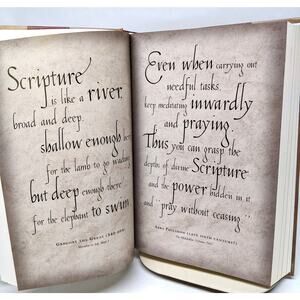 Scripture
is like a river,
broad and deep,
shallow enough here
for the lamb to go wading,
but deep enough there
for the elephant to swim.
Gregory the Great
Even when carrying out
needful tasks,
keep meditating inwardly
and praying.
Thus you can grasp the
depths of divine Scripture
and the power hidden in it
and pray without ceasing